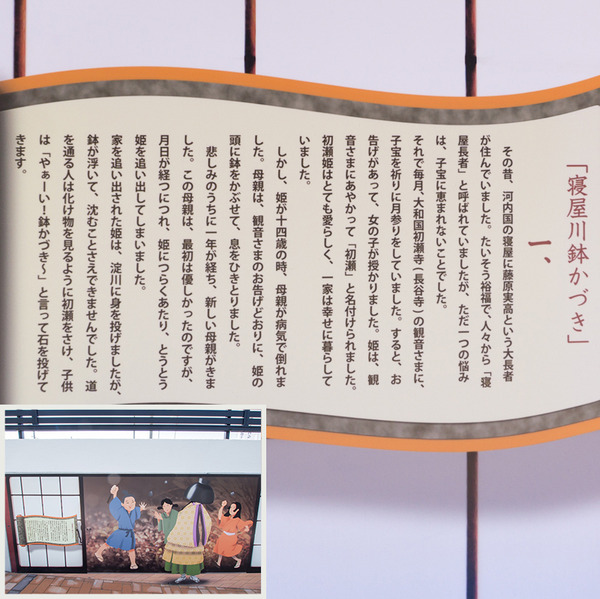 「寝屋川鉢かづき」
一、
その昔、河内国の寝屋に藤原実高という大長者
が住んでいました。たいそう裕福で、人々から「寝
屋長者」と呼ばれていましたが、ただ一つの悩み
は、子宝に恵まれないことでした。
それで毎月、大和国初瀬寺(長谷寺)の観音さまに、
子宝を祈りに月参りをしていました。すると、お
告げがあって、女の子が授かりました。姫は、観
音さまにあやかって「初瀬」と名付けられました。
初瀬姫はとても愛らしく、一家は幸せに暮らして
いました。
しかし、姫が十四歳の時、母親が病気で倒れま
した。母親は、観音さまのお告げどおりに、姫の
頭に鉢をかぶせて、息をひきとりました。
悲しみのうちに一年が経ち、新しい母親がきま
した。この母親は、最初は優しかったのですが、
月日が経つにつれ、姫につらくあたり、とうとう
姫を追い出してしまいました。
家を追い出された姫は、淀川に身を投げましたが、
鉢が浮いて、沈むことさえできませんでした。道
を通る人は化け物を見るように初瀬をさけ、子供
は「やぁーい!鉢かづき〜」と言って石を投げて
きます。